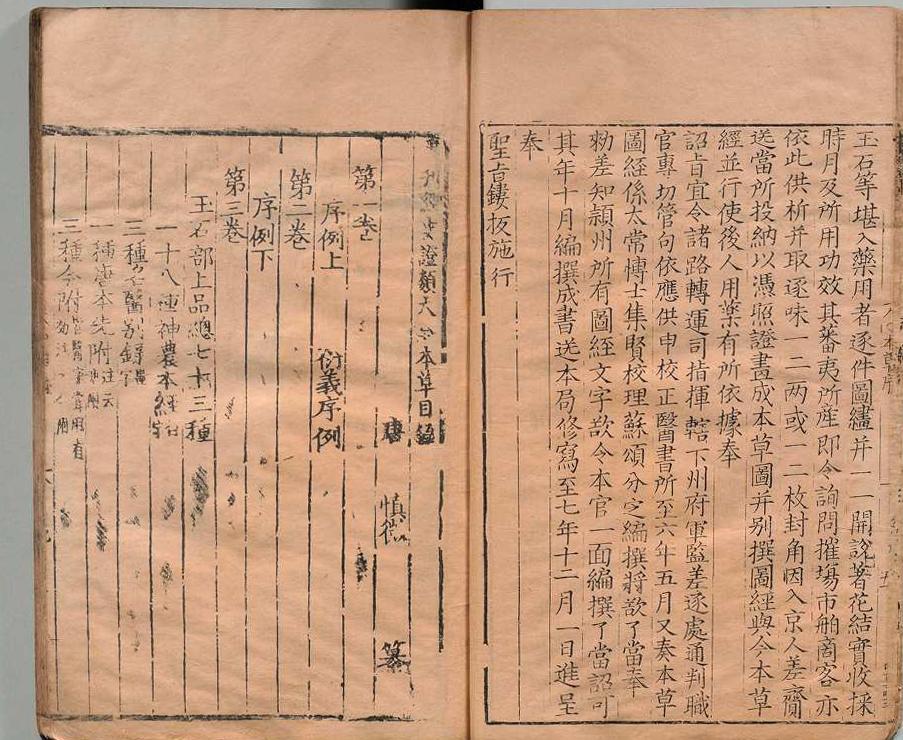 玉石等堪入藥用者逐件圖畫并一一開說著花結實收採
時月及所用功效其蕃夷所産即令詢問摧塲市舶啇客亦
依此供析并取逐味一二兩或一二枚封角因入京人差齎
送當所投納以凴照證畫成本草圖并别撰圖經與今本草
經並行使後人用藥有所依據奉
詔旨宜令諸路轉運司指揮轄下州府軍監差逐處通判職
官專切管句依應供申校正醫書所至六年五月又奏本草
圖經係太常博士集賢校理蘇頌分定編撰將欲了當奉
勑差知潁州所有圖經文字欲令本官一面編撰了當詔可
其年十月編撰成書送本局修寫至七年十二月一日進呈
奉
聖旨鏤板施行
證類大本草目録
唐慎微纂
第一卷
序例上 衍義序例
第二卷
序例下
第三卷
玉石部上品總七十三種
一十八種神農本經
三種名醫别録
一種唐本先附
三種今附